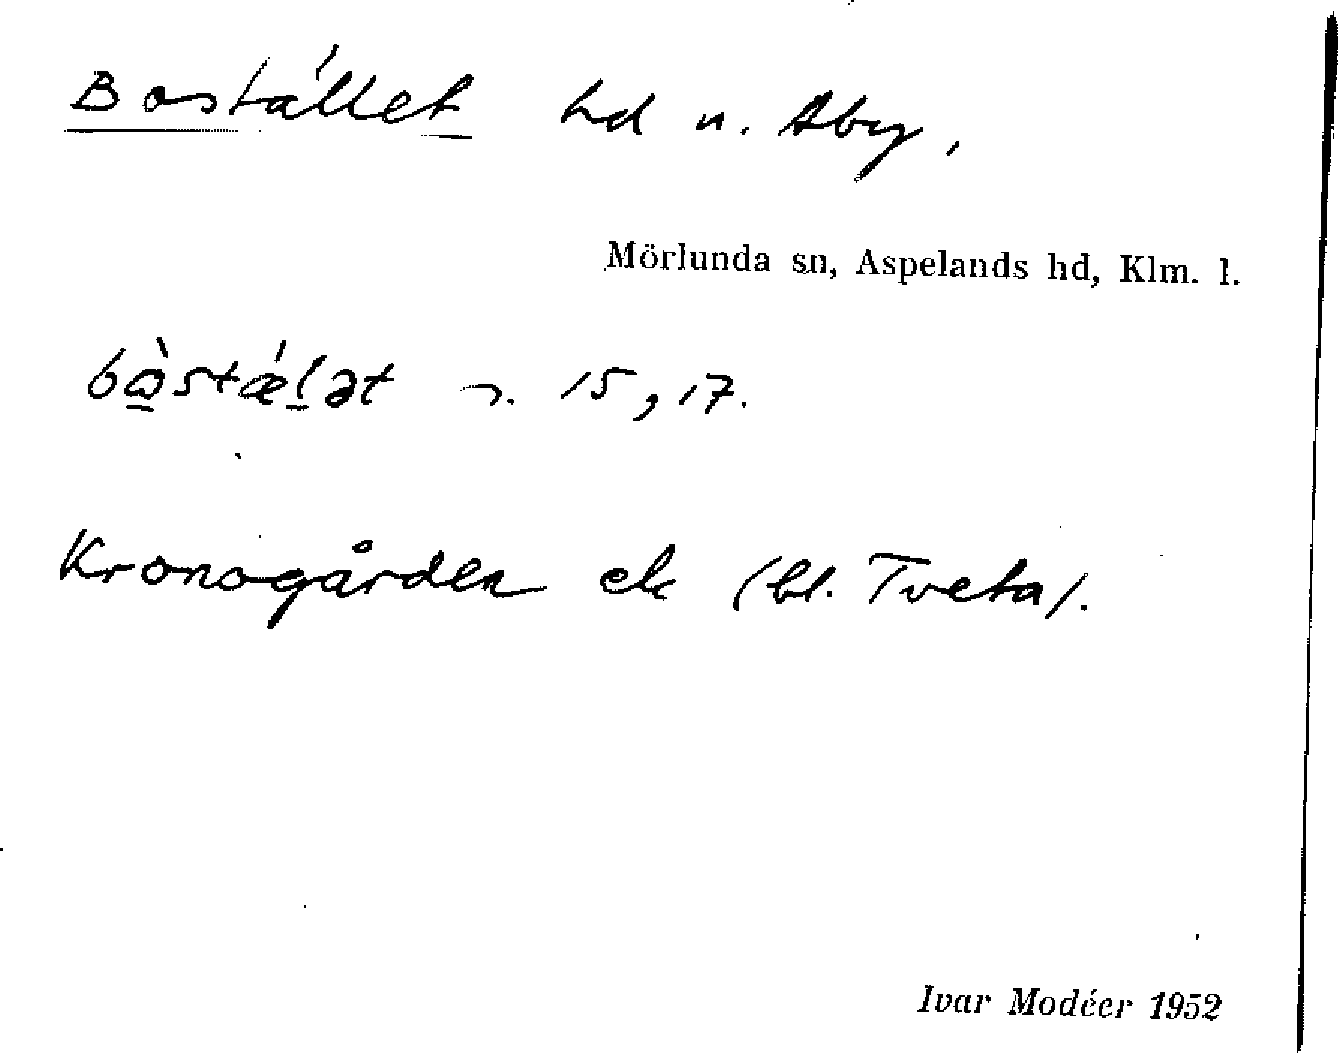 Bostället hd n. Åby,
Mörlunda sn, Aspelands hd, Klm. l.
bò̱stǽḻət n. 15, 17.
Kronogården ek (bl. Tveta).
Ivar Modéer 1952